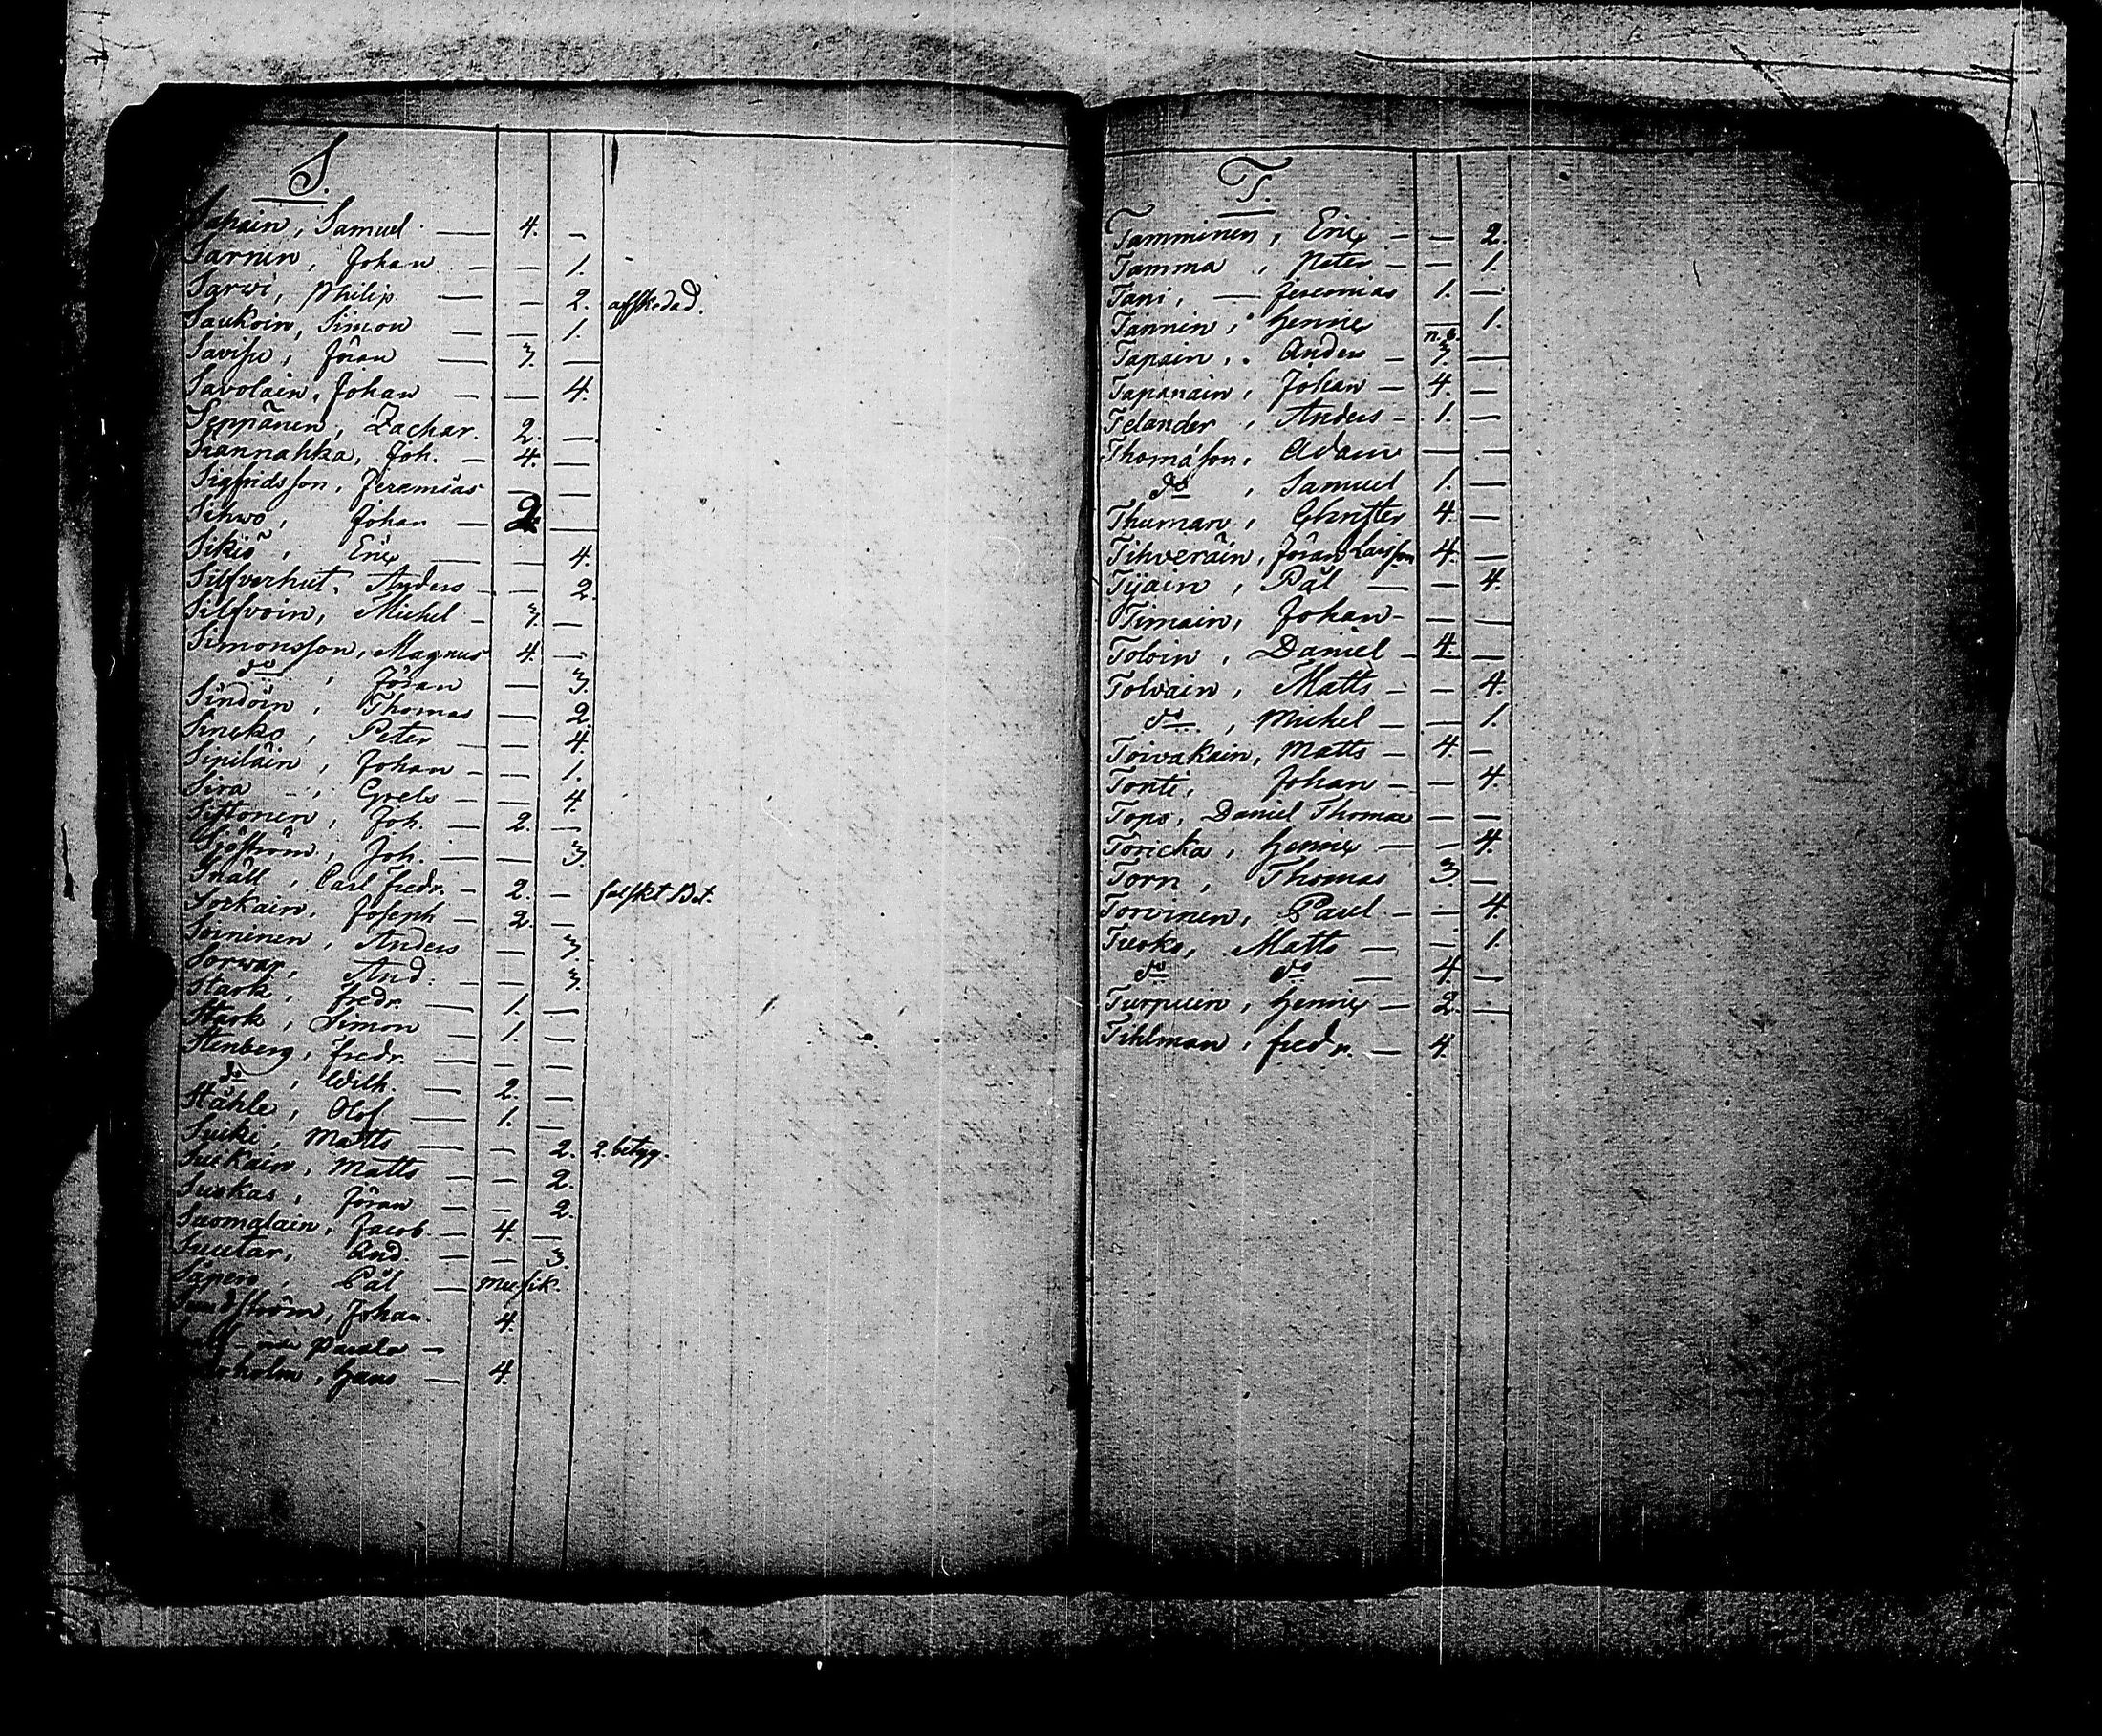 S.
Sapain, Samuel — 4. —
Sarnin, Johan — — 1.
Sarwi, Philip — — 2. affskedad.
Saukoin, Simon — — 1.
Savisu, Jöran — 3. —
Savolain, Johan — — 4.
Seppänen, Zachar. 2. —
Siannahka, Joh. — 4. —
Sigfridsson, Jeremias — —
Sihwo, Johan — 2. —
Sikiö, Eric — — 4.
Silfverhut, Anders — — 2.
Silfvoin, Michel — 3. —
Simonsson, Magnus 4. —
do, Jöran — 3.
Sindoin, Thomas — 2.
Sineko, Peter — — 4.
Sipiläin, Johan — — 1.
Sira, Grels — — 4.
Sittonen, Joh. — 2. —
Sjöström, Joh. — — 3.
Snäll, Carl Fredr. — 2. — falskt Bet.
Sorkain, Joseph — 2. —
Soininen, Anders — 3.
Sorwar, And. — — 3.
Stark, Fredr. — 1. —
Stark, Simon — 1. —
Stenberg, Fredr. — — —
do, Wilh. — 2. —
Ståhle, Olof — 1. —
Suiki, Matts — — 2. 2. betyg.
Suikain, Matts — — 2.
Suokas, Jöran — — 2.
Suomalain, Jacob — 4. —
Suutar, And. — — 3.
Säpero, Pål — musik.
Sundström, Johan. 4.
holm, Hans — 4.
T.
Tamminen, Eric — — 2.
Tamma, Peter — — 1.
Tani, — Jeremias 1. —
Tannin, Henric — 1.
n. 8.
Tapain, Anders — 3. —
Tapanain, Johan — 4. —
Telander, Anders — 1. —
Thomason, Adam — —
do, Samuel 1. —
Thuman, Christer 4. —
Tihveräin, Jöran Larsson 4. —
Tijain, Pål — — 4.
Timain, Johan — — —
Toloin, Daniel — 4. —
Tolvain, Matts — — 4.
do, Michel — — 1.
Toivakain, Matts — 4. —
Tonti, Johan — — 4.
Topo, Daniel Thomas — —
Toricka, Henric — — 4.
Torn, Thomas 3. —
Torvinen, Paul — — 4.
Tuoko, Matts — — 1.
do do — 4. —
Turpuin, Henric — 2. —
Tihlman, Fredr. — 4.